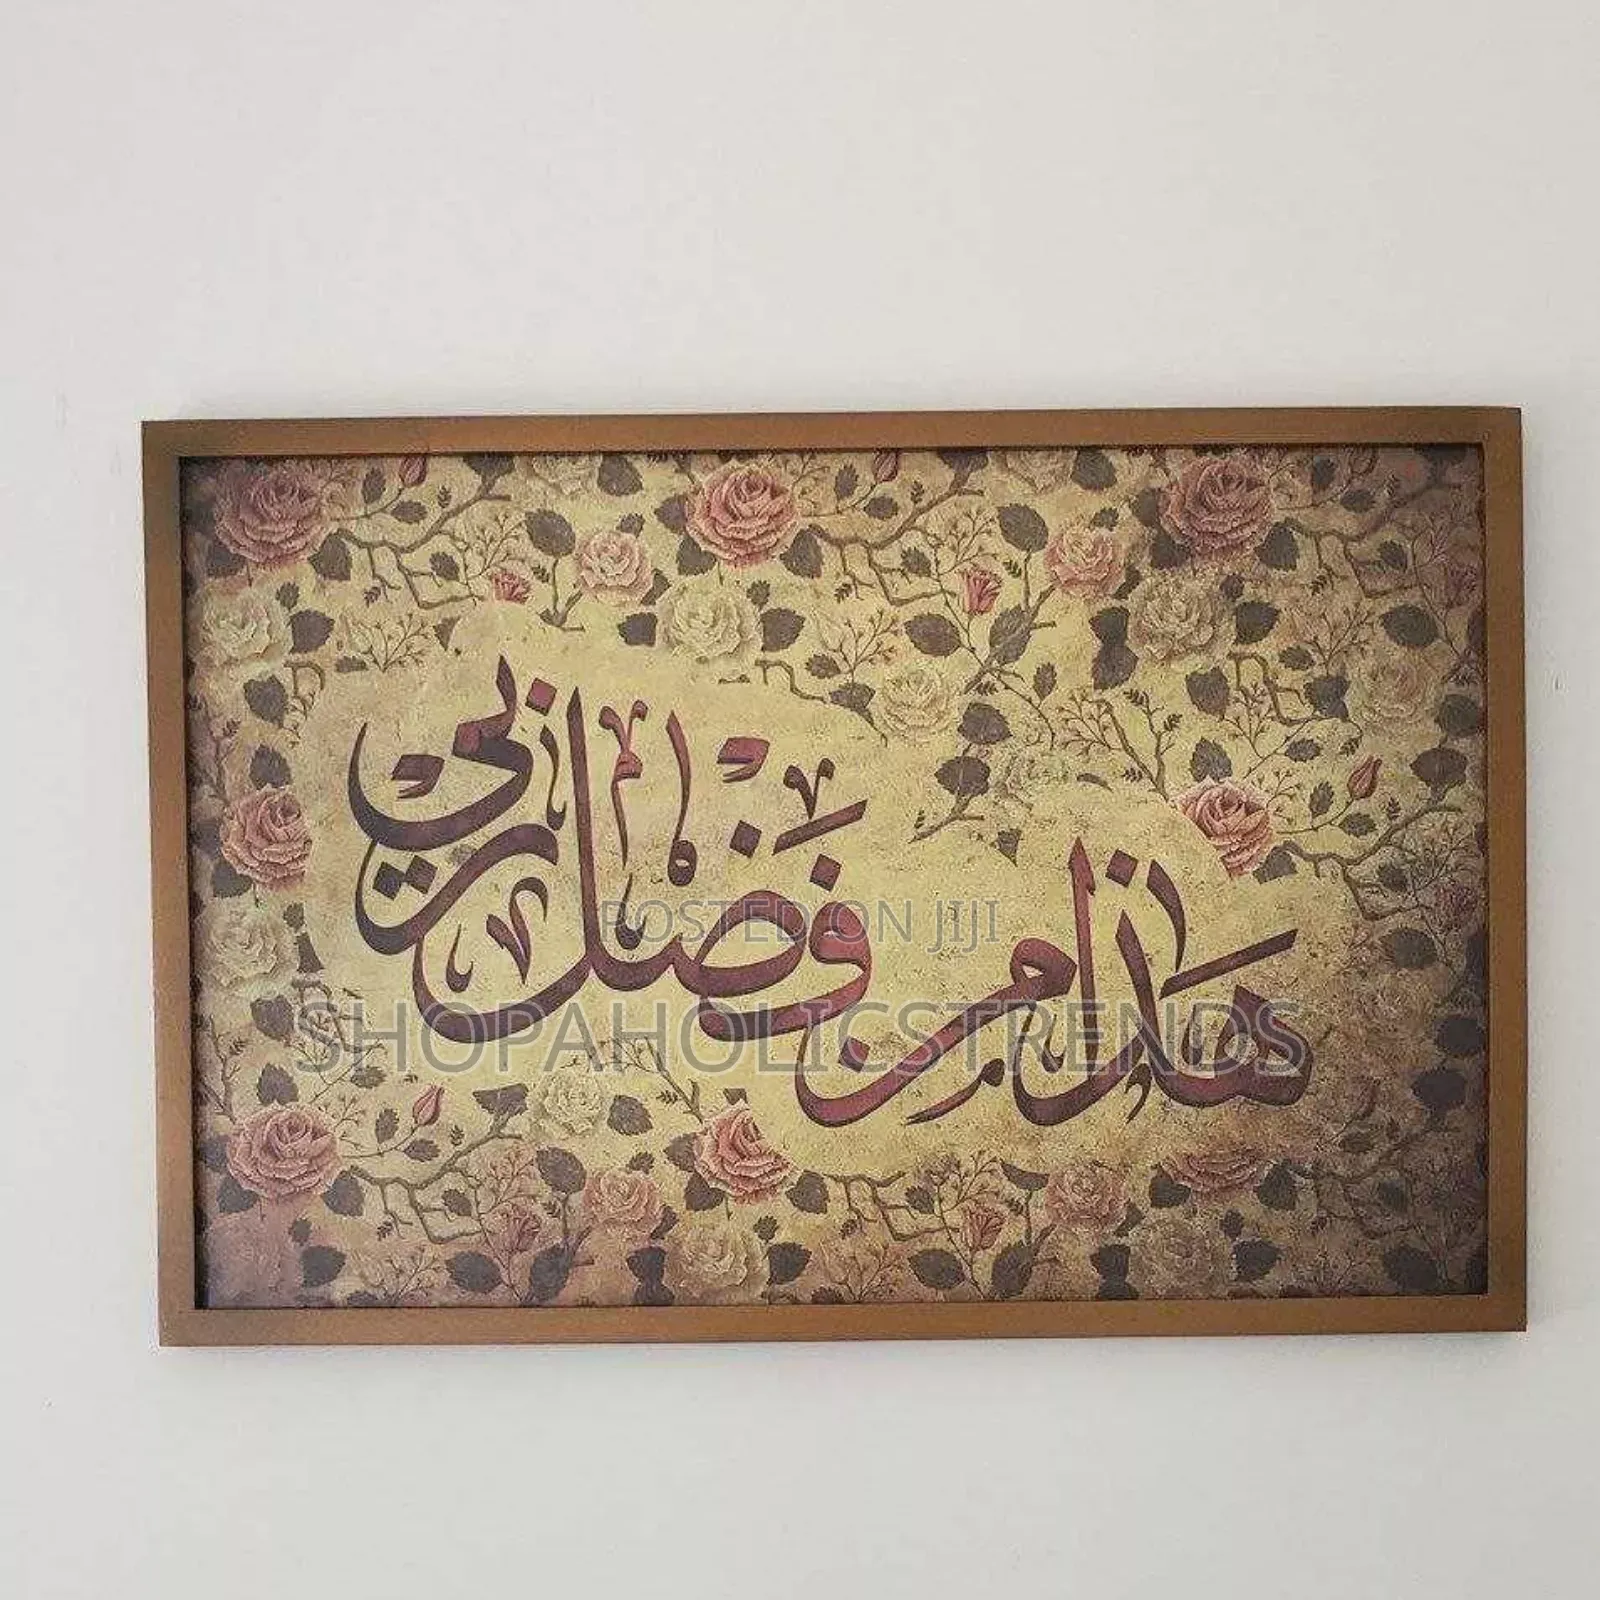 هذا من فضل ربي
POSTED ON JIJI
SHOPAHOLICSTRENDS